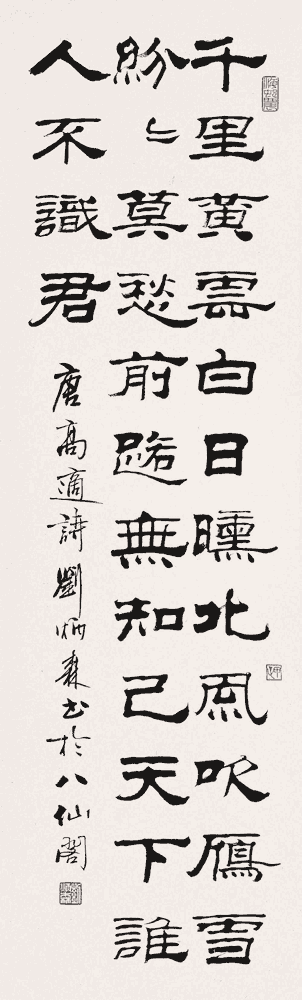 千里黄雲白日曛北風吹鴈雪
紛々莫愁前路無知己天下誰
人不識君
唐高適詩劉炳森書於八仙閣